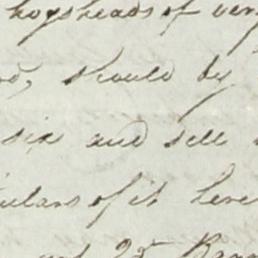 hogsheads of very
should by
six and sell
culars of it here